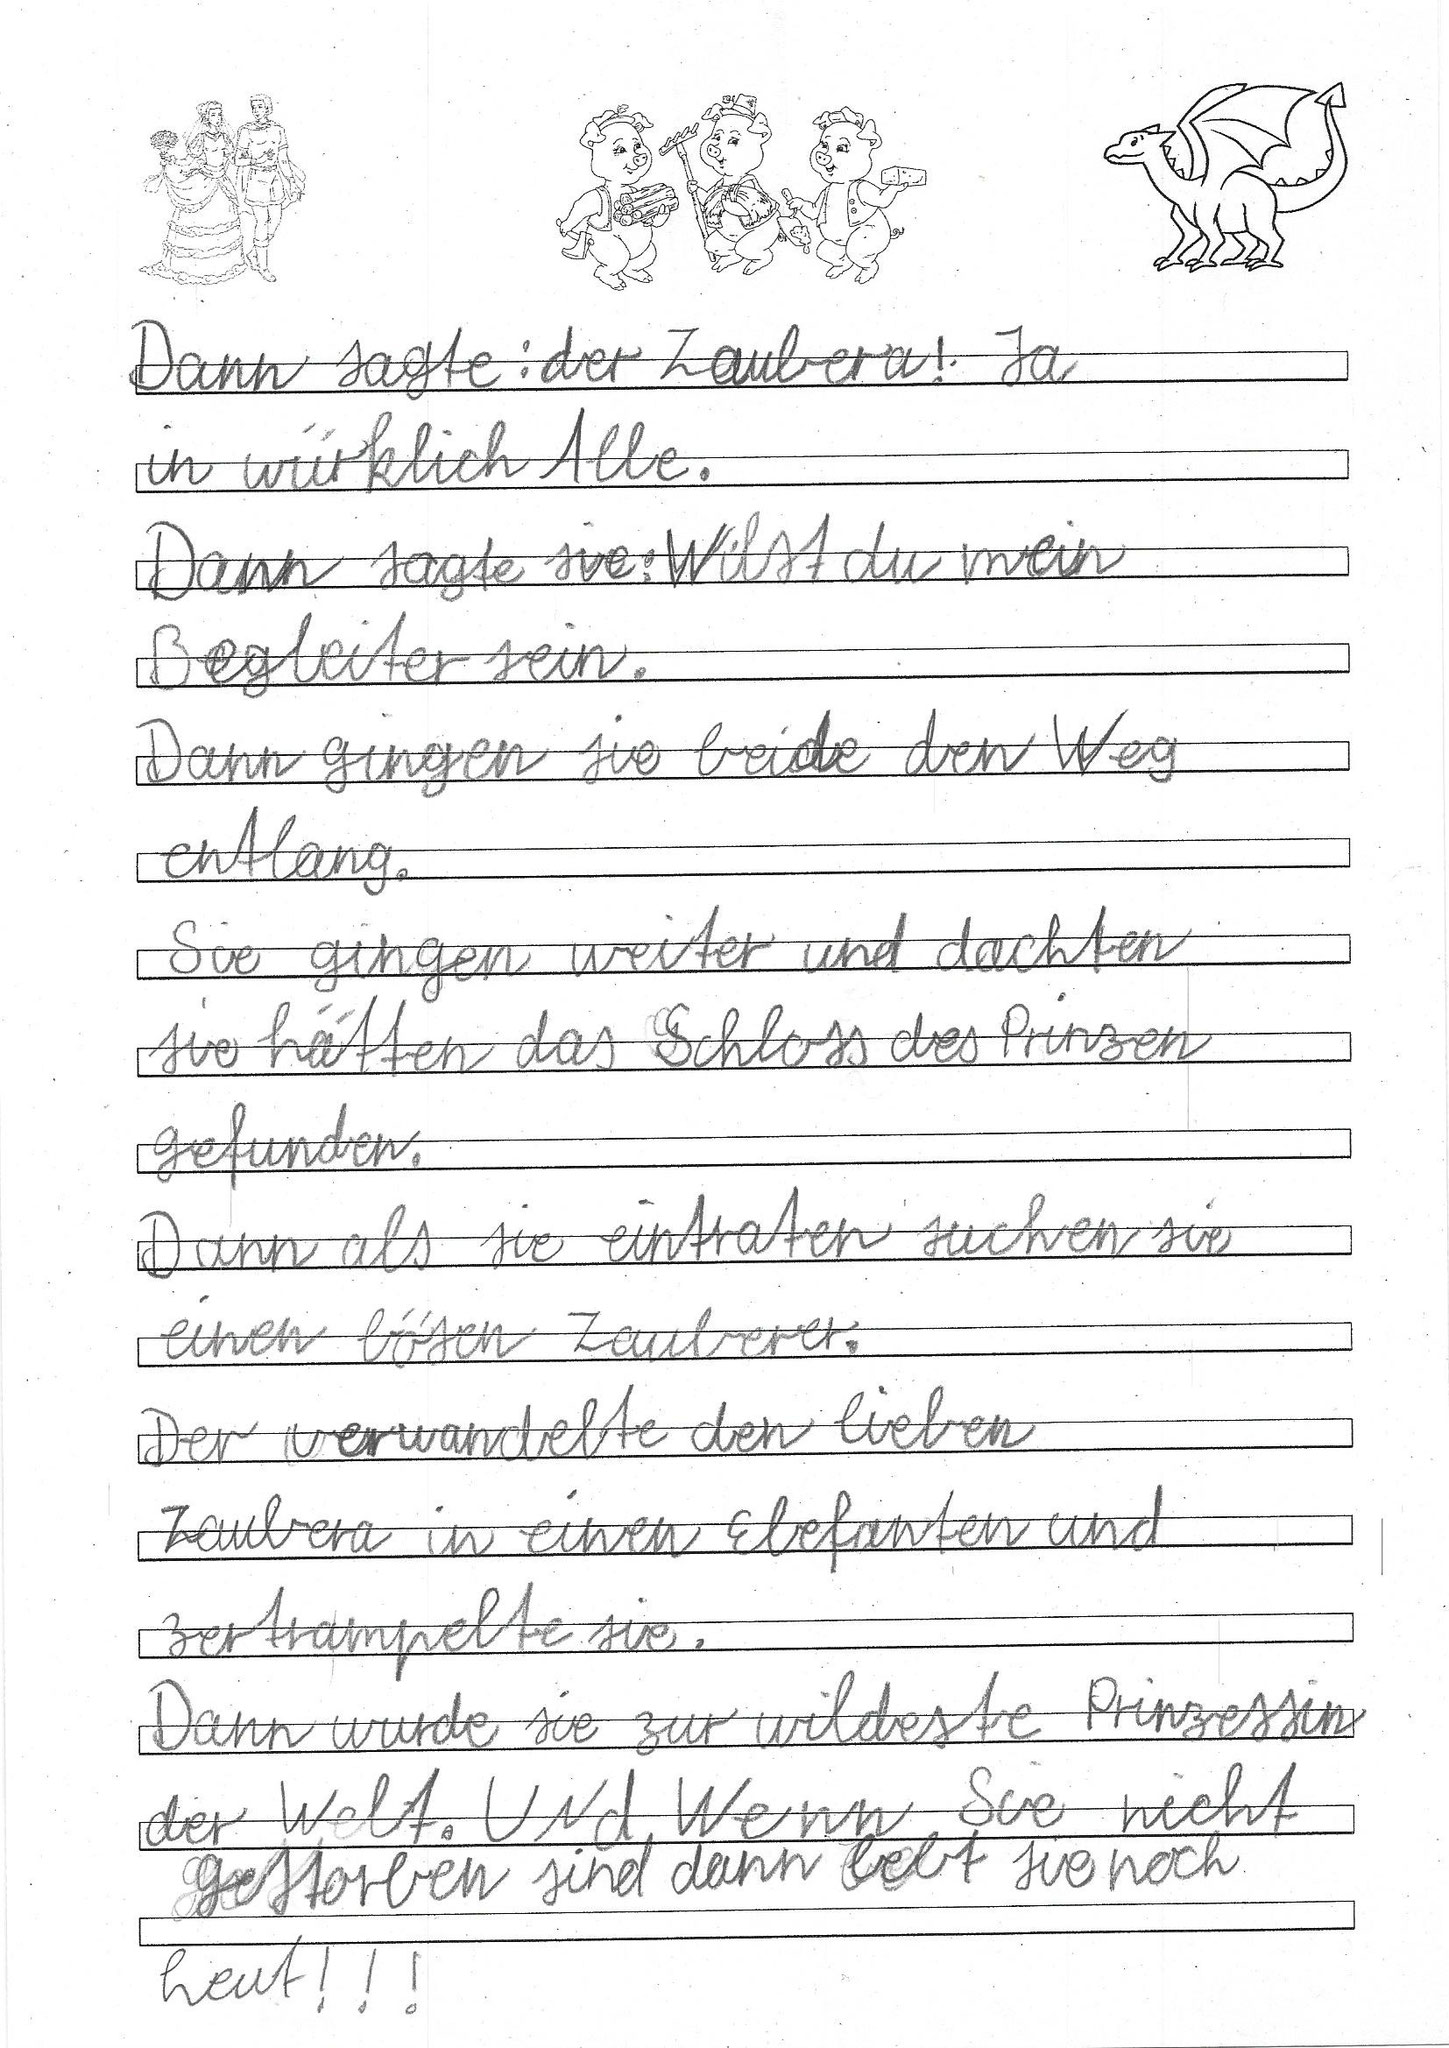 Dann sagte: der Zaubera! Ja
in würklich Alle.
Dann sagte sie: Wilst du mein
Begleiter sein.
Dann gingen sie beide den Weg
entlang.
Sie gingen weiter und dachten
sie hätten das Schloss des Prinzen
gefunden.
Dann als sie eintraten suchen sie
einen bösen Zauberer.
Der verwandelte den lieben
Zaubera in einen Elefanten und
zertrampelte sie.
Dann wurde sie zur wildeste Prinzessin
der Welt. UNd Wenn Sie nicht
gestorben sind dann lebt sie noch
heut!!!